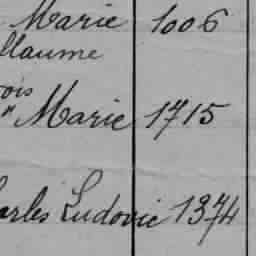 Marie 1006
llaume
ois
" Marie 1715
arles Ludovic 1374